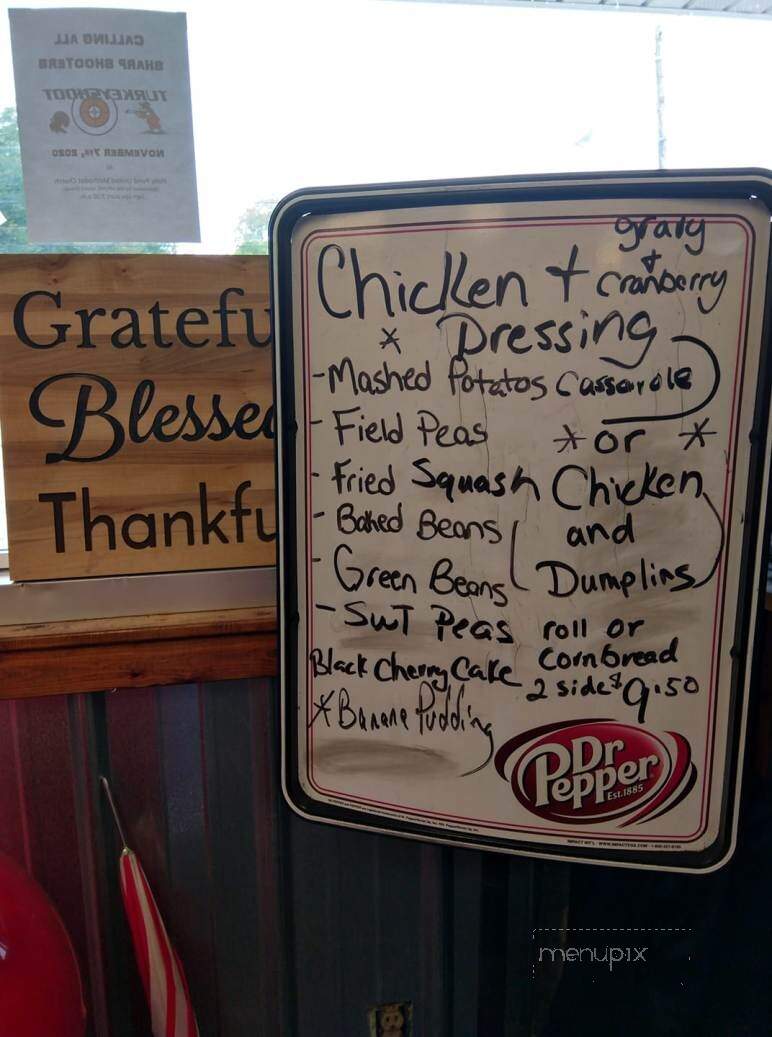 CALLING ALL
SHARP SHOOTERS
TURKEYSHOOT
NOVEMBER 7TH, 2020
Gratefu
Blesse
Thankfu
gravy
Chicken + + cranberry
* Dressing
-Mashed Potatos Casserole
- Field Peas * or *
- Fried Squash Chicken
- Baked Beans and
- Green Beans Dumplins
- SWT Peas roll or
Black Cherry Cake Cornbread
2 side $9.50
* Banana Pudding
Dr
Pepper
Est.1885
menupix